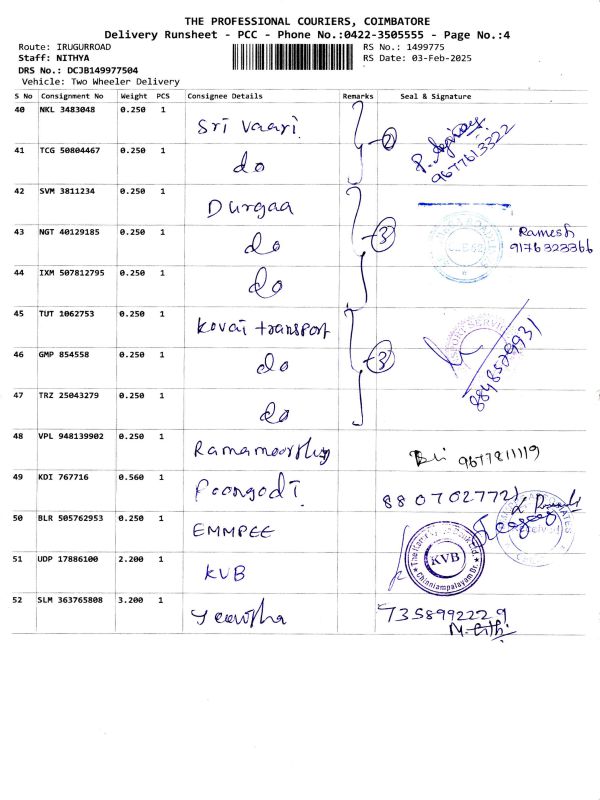 THE PROFESSIONAL COURIERS, COIMBATORE
Delivery Runsheet - PCC - Phone No.:0422-3505555 - Page No.:4
Route: IRUGURROAD RS No.: 1499775
Staff: NITHYA RS Date: 03-Feb-2025
DRS No.: DCJB149977504
Vehicle: Two Wheeler Delivery
S No Consignment No Weight PCS Consignee Details Remarks Seal & Signature
40 NKL 3483048 0.250 1 Sri Vaari 2 9677613322
41 TCG 50804467 0.250 1 do
42 SVM 3811234 0.250 1 Durgaa
43 NGT 40129185 0.250 1 do 3 Ramesh
9176323366
44 IXM 507812795 0.250 1 do
45 TUT 1062753 0.250 1 Kovai transport
46 GMP 854558 0.250 1 do 3 8848529931
47 TRZ 25043279 0.250 1 do
48 VPL 948139902 0.250 1 Ramamoorthy 9677811119
49 KDI 767716 0.560 1 Poongodi 8807027721
50 BLR 505762953 0.250 1 EMMPEE
51 UDP 17886100 2.200 1 KVB KVB Chinniampalayam Br.
52 SLM 363765808 3.200 1 7358992229